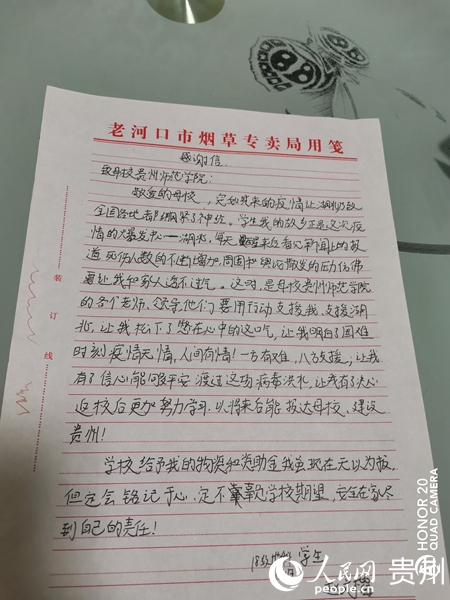 老河口市烟草专卖局用笺
感谢信
致母校贵州师范学院:
敬爱的母校,突如其来的疫情让湖北乃至
全国各地都绷紧了神经。学生我的故乡正是这次疫
情的爆发地——湖北,每天醒来后看见新闻上的报
道,死伤人数的不断增加,周围
要让我和家人透不过气。这时,是母校贵州师范学院
的各个老师、领导,他们要用行动支援我、支援湖
北,让我松下了憋在心中的这口气,让我明白了困难
时刻疫情无情,人间有情!一方有难,八方支援,让我
有了信心能够平安渡过这场病毒洪水,让我有了决心
返校后更加努力学习,以将来后能报达母校、建设
贵州!
学校给予我的物资和资助金我虽现在无以为报,
但定会铭记于心,定不辜负学校期望,安全在家尽
到自己的责任!
学生
装
订
线
HONOR 20
QUAD CAMERA
人民网 贵州
people.cn